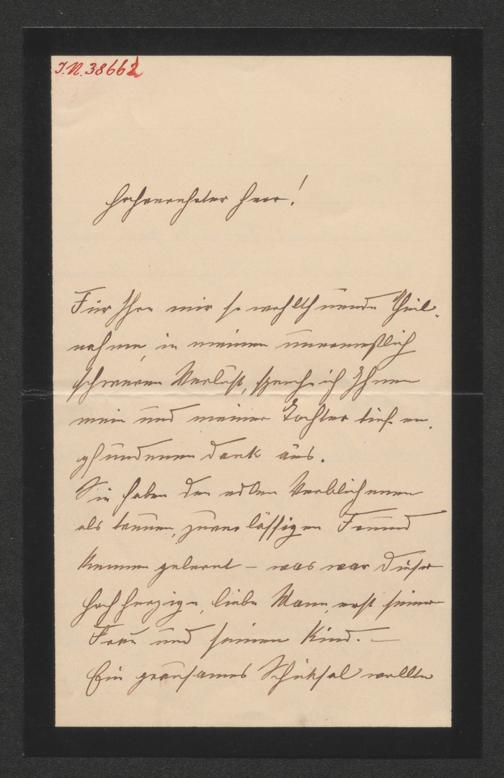 J.N. 38662
Hochverehrter Herr!
Für Ihre mir so wohlthuende Theil-
nahme, in meinem unermeßlich
schweren Verlust, spreche ich Ihnen
mein und meiner Tochter tief em-
pfundenen Dank aus.
Sie haben den edlen Verblichenen
als treuen, zuverlässigen Freund
kennen gelernt – was war dieser
hochherzige, liebe Mann erst seiner
Frau und seinem Kind. –
Ein grausames Schicksal wollte